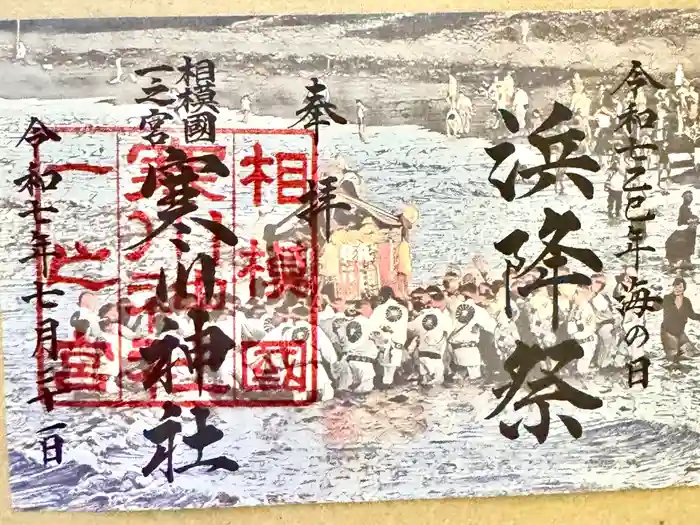 令和七乙巳年海の日
浜降祭
奉拝
相模國
一之宮
寒川神社
令和七年七月二十一日
相模國
寒川神社
一之宮